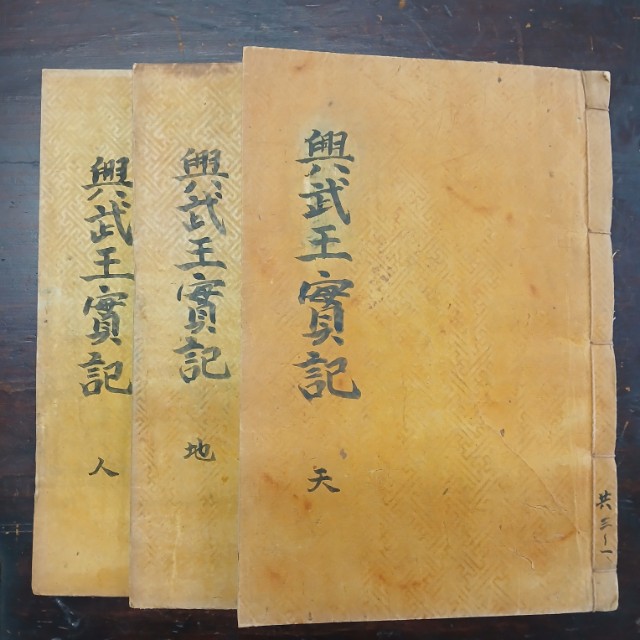 共三ー一
興武王實記
天
興武王實記
地
興武王實記
人